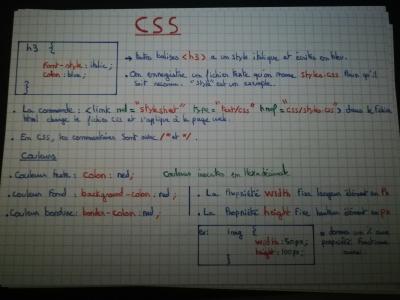 CSS
h3 {
font-style : italic;
color : blue;
}
→ Autres balises <h3> a un style italique et écrites en bleu.
• On enregistre un fichier texte qu'on nomme styles.css Pour qu'il
soit reconnu. "style" est un exemple.
• La commande : <link rel="stylesheet" type="text/css" href="css/styles.css"> dans le fichier
html charge le fichier css et s'applique à la page web.
• En CSS, les commentaires sont entre /* et */.
Couleurs
• Couleur texte : color : red;
Couleurs inscrites en Hexadécimale
• Couleur Fond : background-color : red;
• Couleur bordure : border-color : red;
• La Propriété width Fixe largeur élément en Px
• La Propriété height Fixe hauteur élément en px
ex: img {
width : 50px;
height : 100px;
}
propriété fonctionne
aussi.